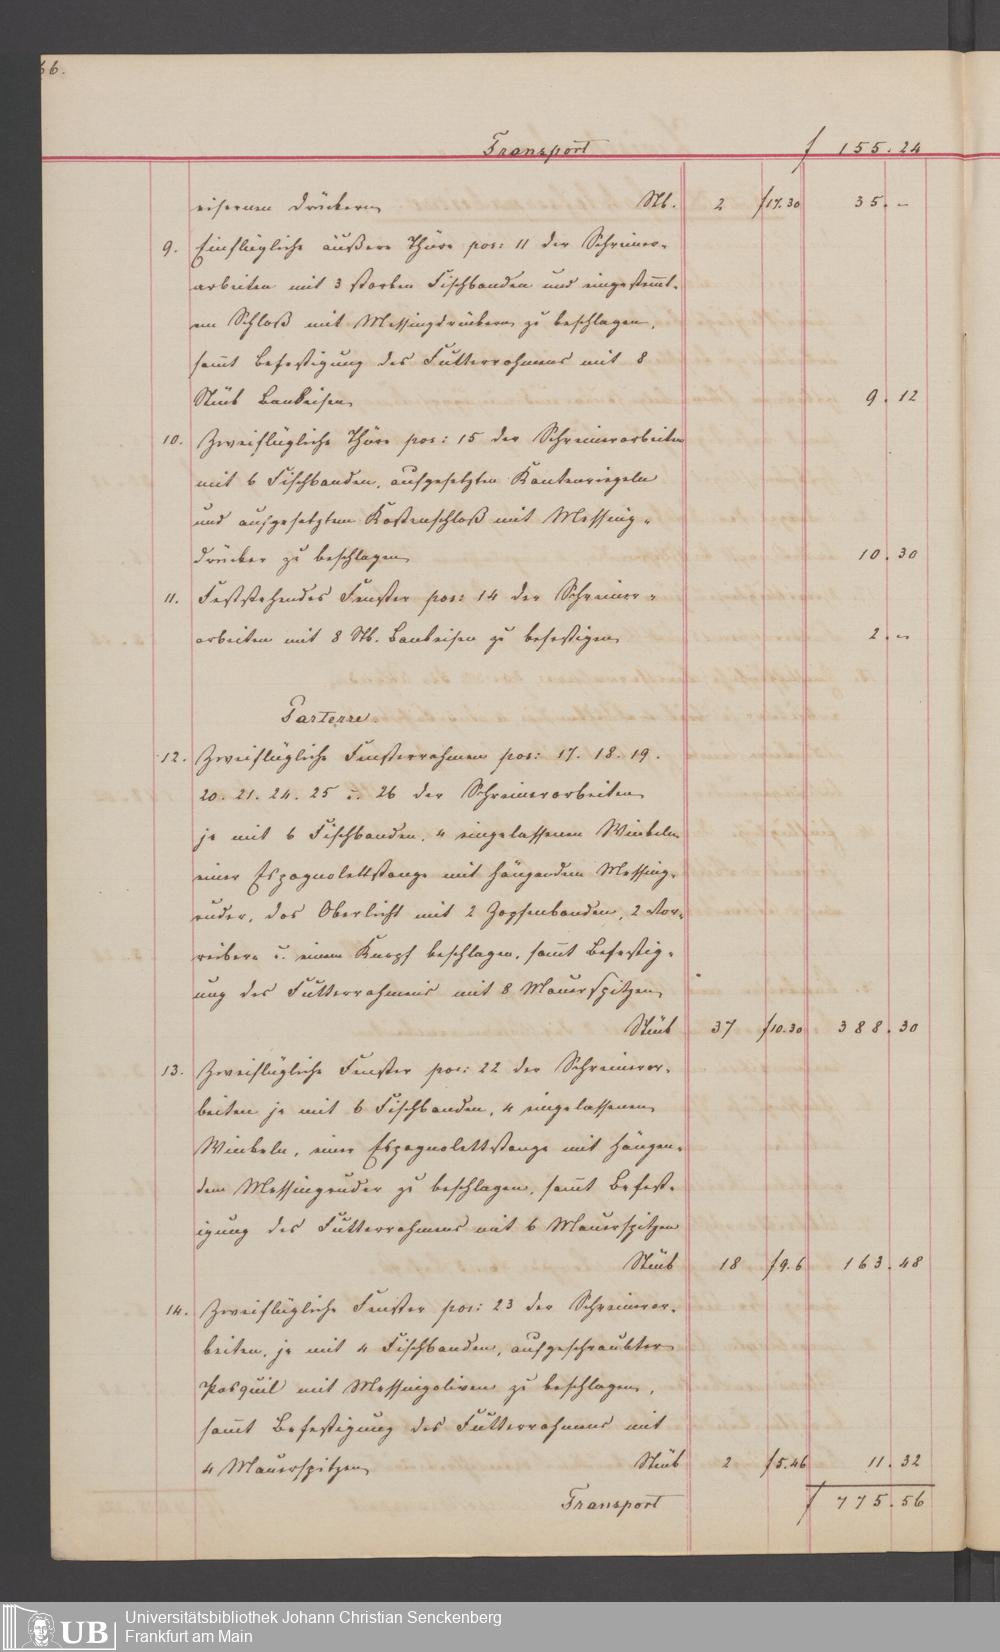 66.
Transport f 155.24
eisernen Drückern Stk. 2 f 17.30 35.–
9. Einflügliche äußere Thüre pos: 11 der Schreiner-
arbeiten mit 3 starken Fischbanden und eingestem̄t-
em Schloß mit Messingdrückern zu beschlagen,
sam̄t Befestigung des Futterrahmens mit 8
Stück Bankeisen 9.12
10. Zweiflügliche Thüre pos: 15 der Schreinerarbeiten
mit 6 Fischbanden, aufgesetzten Kantenriegeln
und aufgesetztem Kastenschloß mit Messing-
drücker zu beschlagen 10.30
11. Feststehendes Fenster pos: 14 der Schreiner-
arbeiten mit 8 Stk. Bankeisen zu befestigen 2.–
Parterre.
12. Zweiflügliche Fensterrahmen pos: 17. 18. 19.
20. 21. 24. 25 u. 26 der Schreinerarbeiten
je mit 6 Fischbanden, 4 eingelassenen Winkeln
einer Espagnolettstange mit hängendem Messing-
ruder, das Oberlicht mit 2 Zapfenbanden, 2 Vor-
reibern u. einem Knopf beschlagen, sam̄t Befestig-
ung des Futterrahmens mit 8 Mauerspitzen
Stück 37 f 10.30 388.30
13. Zweiflügliche Fenster pos: 22 der Schreinerar-
beiten je mit 6 Fischbanden, 4 eingelassenen
Winkeln, einer Espagnolettstange mit hängen-
dem Messingruder zu beschlagen, sam̄t Befest-
igung des Futterrahmens mit 6 Mauerspitzen
Stück 18 f 9.6 163.48
14. Zweiflügliche Fenster pos: 23 der Schreinerar-
beiten, je mit 4 Fischbanden, aufgeschraubter
Pasquil mit Messingoliven zu beschlagen,
sam̄t Befestigung des Futterrahmens mit
4 Mauerspitzen Stück 2 f 5.46 11.32
Transport f 775.56
UB Universitätsbibliothek Johann Christian Senckenberg
Frankfurt am Main